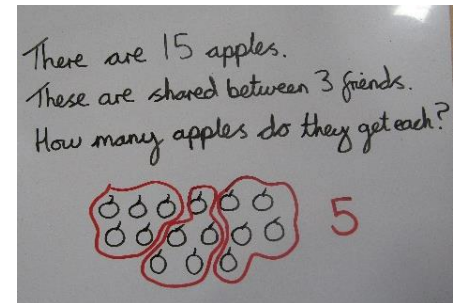 There are 15 apples.
These are shared between 3 friends.
How many apples do they get each?
5